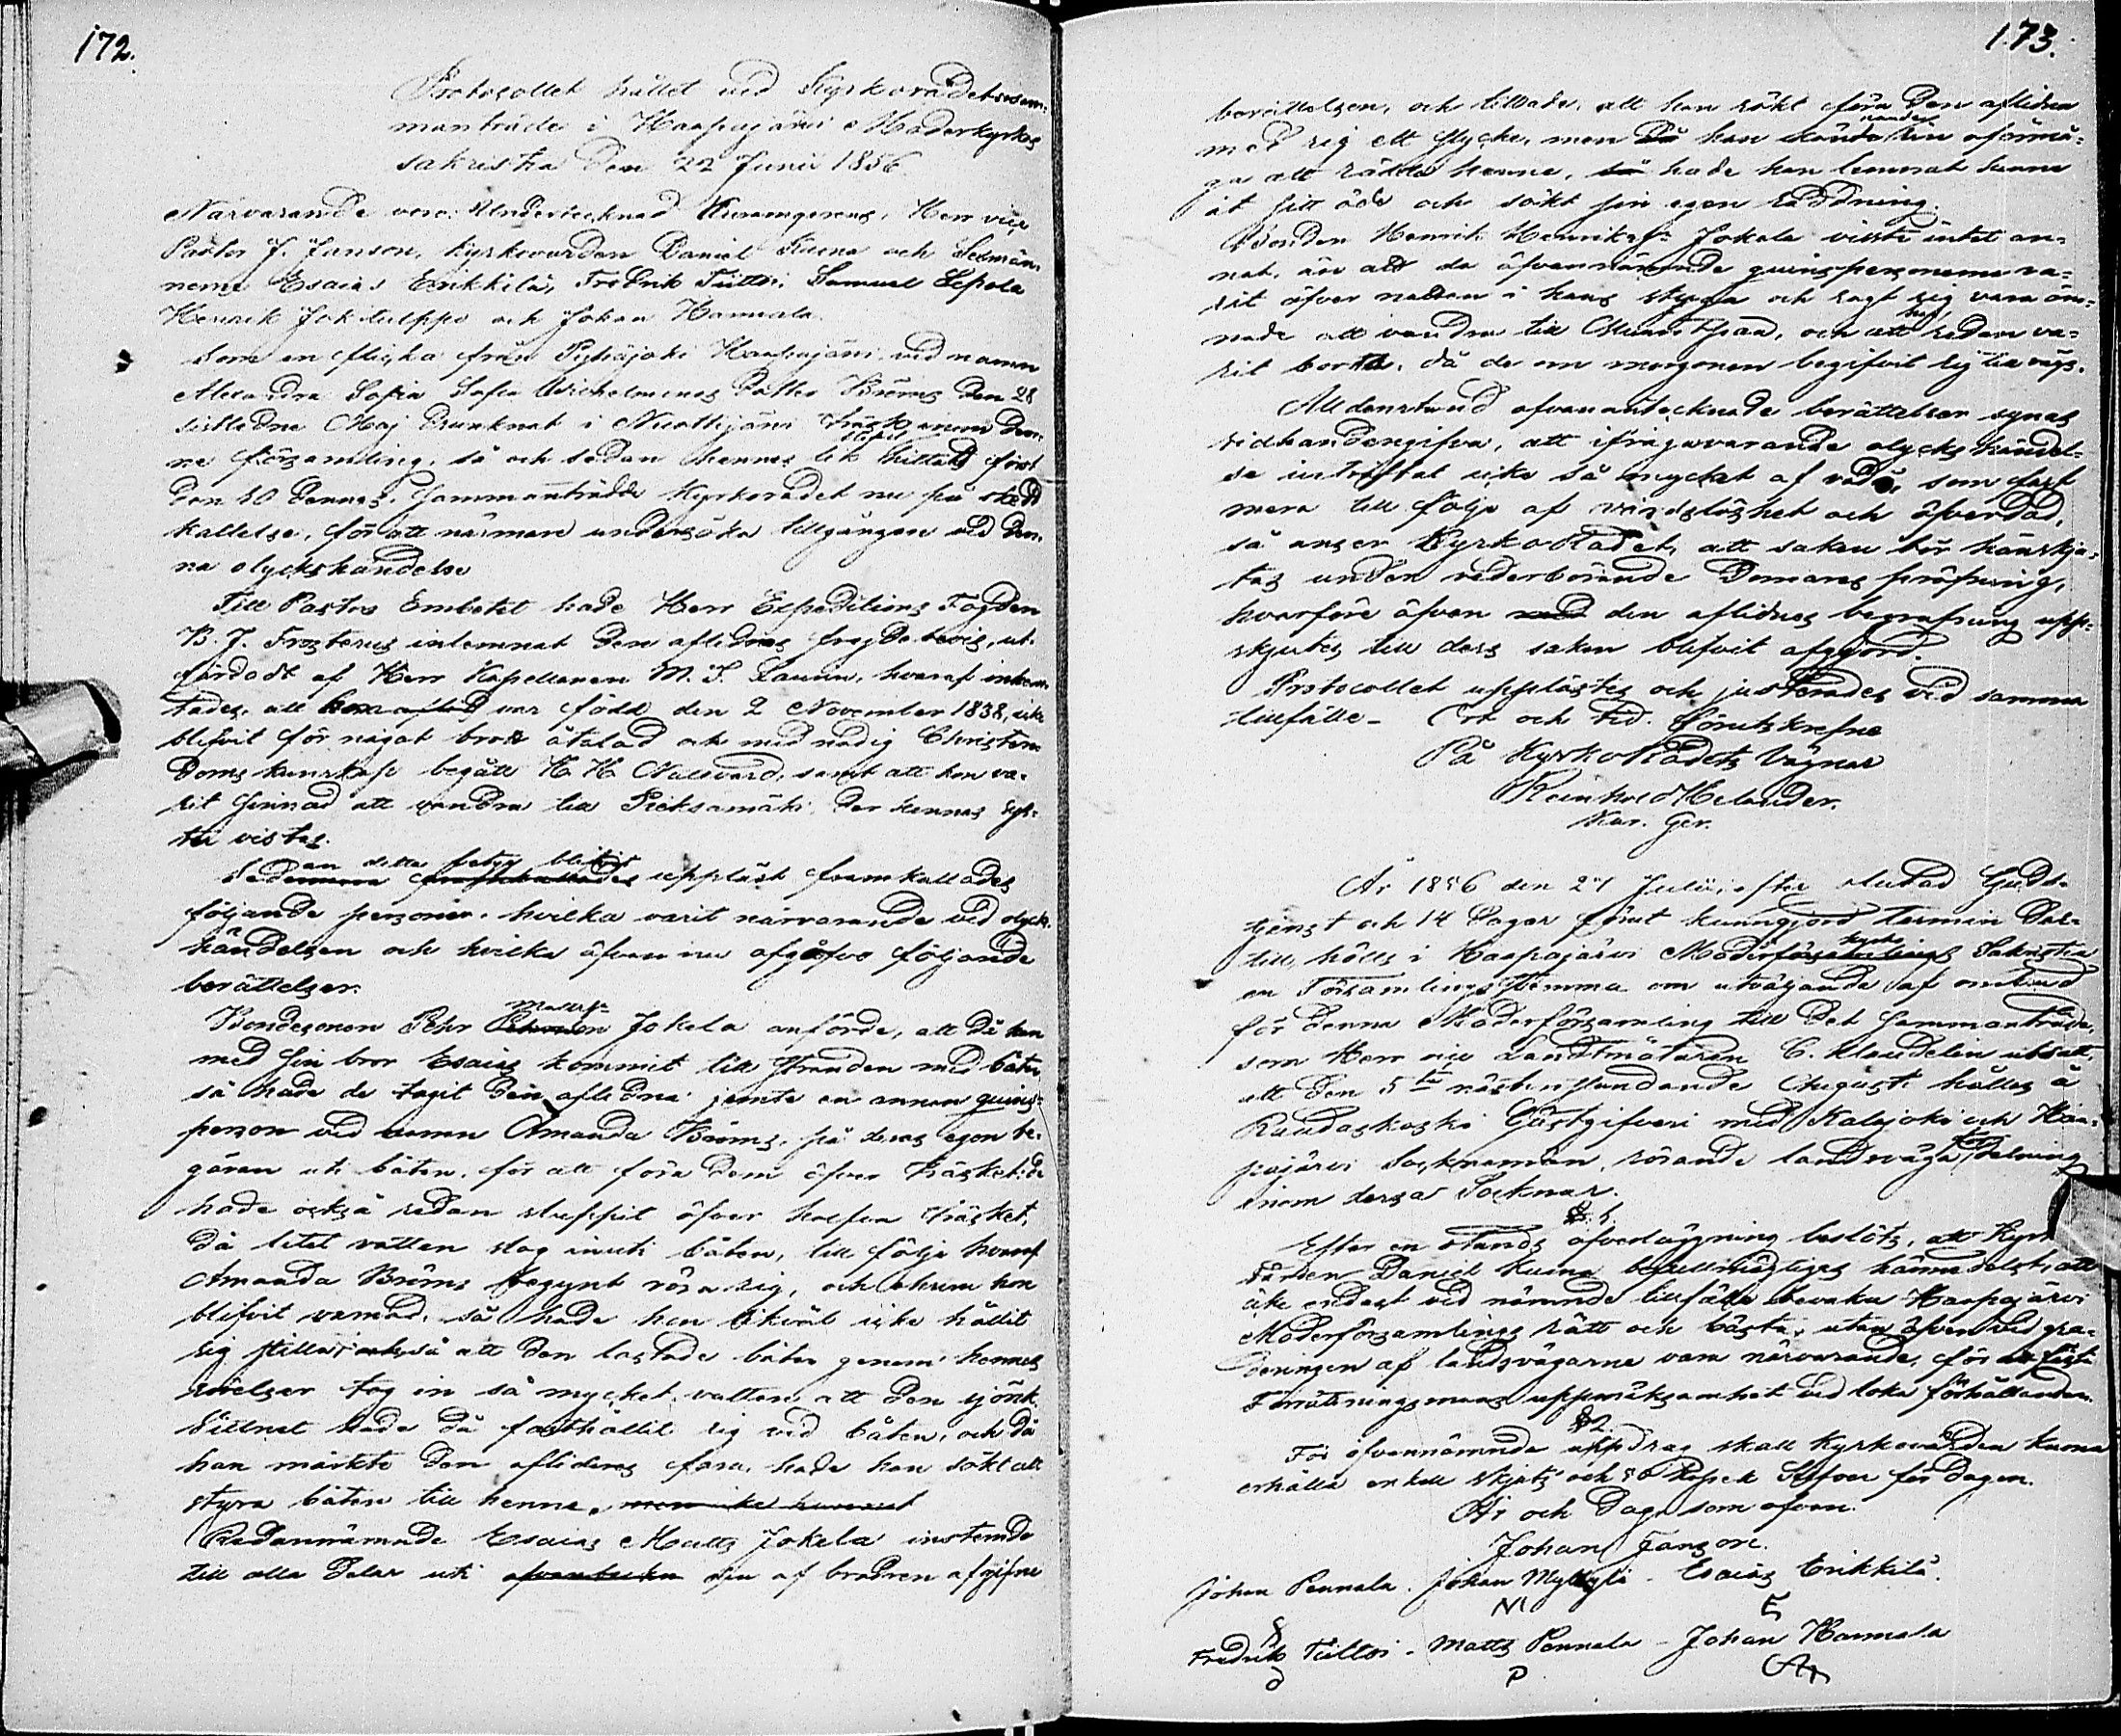 172.
Protocollet hållet vid Kyrkorådetssam-
manträde i Haapajärvi Moderkyrkas
sakristia Den 22 Junii 1856.
Närvarande voro: Undertecknad Kuramgerens, Herr vice
Pastor J. Janson, kyrkovärden Daniel Kuona och Sexmän-
nerne Esaias Erikkilä, Fredrik Tiittoi, Samuel Lepola
Henrik Joktulppo och Johan Hannala.
Som en flicka från Pyhäjoki Haapajärvi vid namn
Alexandra Sofia Sofia Wilhelmines Dotter Bröms den 28
sistledne Maj drunknat i Nuottijärvi träsk inom den-
blifvit
ne församling, så och sedan hennes lik hittats först
den 10 dennes, sammanträdde Kyrkorådet nu på skedd
kallelse, för att närmare undersöka tillgången vid den-
na olyckshändelse
Till Pastors Embetet hade Herr Expeditions Fogden
B. J. Frosterus inlemnat den aflidnes frejdebevis, ut-
färdadt af Herr Kapellanen M. J. Laurin, hvaraf inhem-
tades, att hon aflid var född den 2 November 1838, icke
blifvit för något brott åtalad och med nödig Christen-
doms kunskap begått H. H. Nattvard, samt att hon va-
rit sinnad att vandra till Pieksämäki der hennes sys-
ter vistas.
an detta betyg blifvit
Sedemera framkallades uppläst framkallades
följande personer, hvilka varit närvarande vid olycks-
händelsen och hvilka äfven nu afgåfvo följande
berättelser.
Mattss.
Bondesonen Pehr Pehrsson Jokela anförde, att då han
med sin bror Esaias kommit till stranden med båten,
så hade de tagit den aflidna jemte en annan quins-
person vid namn Amanda Bröms, på deras egen be-
gäran uti båten, för att föra dem öfver träsket; de
hade också redan sluppit öfver halfva träsket,
då litet vatten slog inuti båten, till följe hvaraf
Amanda Bröms begynt röra sig, och ehuru hon
blifvit varnad, så hade hon likväl icke hållit
sig stilla; och så att den lastade båten genom hennes
rörelser tog in så mycket vatten att den sjönk.
Vittnet hade då fasthållit sig vid båten, och då
han märkte den aflidnes fara, hade han sökt att
styra båten till henne, men icke hunnit
Redannämnde Esaias Matts Jokela instemde
till alla delar uti ofvanteckn den af brodren afgifne
173.
berättelsen, och tillade, att han sökt föra den aflidna
med sig ett stycke, men då han kände sin oförmå-
ga att rädda henne, så hade han lemnat henne
åt sitt öde och sökt sin egen räddning.
Bonden Henrik Henrikss. Jokela visste intet an-
nat, än att de öfvannämnde quinspersonerna va-
rit öfver natten i hans stuga och sagt sig vara äm-
nade att vandra till Muurasjärvi, och att redan va-
rit borta, då de om morgonen begifvit sig till vägs.
Alldenstund ofvanantecknade berättelser synas
vidhandengifva, att ifrågavarande olyckshändel-
se inträffat icke så mycket af våda, som fast
mera till följe af vårdslöshet och öfverdåd,
så anser KyrkoRådet, att saken bör hänskju-
tas under vederbörande Domares pröfning,
hvarföre äfven med den aflidnes begrafning upp-
skjutes till dess saken blifvit afgjord.
Protocollet upplästes och justerades vid samma
tillfälle. Ort och tid förutskrefne
På KyrkoRådets Vägnar
Reinhold Helander.
Kur. Ger.
År 1856 den 27 Julii, efter slutad Guds-
tjenst och 14 Dagar förut kunngjord termin der-
kyrko
till, hölls i Haapajärvi Moderförsamlings Sakristia
en Församlingsstemma om utväljande af ombud
för denna Moderförsamling till det sammanträde,
som Herr vice Landtmätaren C. Klaudelin utsatt,
att den 5te nästinstundande Augusti hålles å
Raudaskoski Gästgifveri med Kalajoki och Haa-
pajärvi Sockneman, rörande landsväga delning
inom dessa Socknar.
§. 1.
Efter en stunds öfverläggning beslöts, att Kyrko-
värden Daniel Kuona befullmägtigas hännedelst, att
icke endast vid nämnde tillfälle bevaka Haapajärvi
Moderförsamlings rätt och bästa, utan äfven vid gra-
deringen af landsvägarne vara närvarande, för att fästa
Förrättningsmans uppmärksamhet vid loka förhållanden.
§ 2.
För ofvannämnde uppdrag skall Kyrkovärden Kuona
erhålla enkel skjuts och 50 Kopek Silfver för dagen.
År och Dag, som ofvan.
Johan Janson.
Johan Pennala. Johan Myllylä. Esaias Erikkilä.
Fredrik Tiittoi. Matts Pennala. Johan Hannala
P